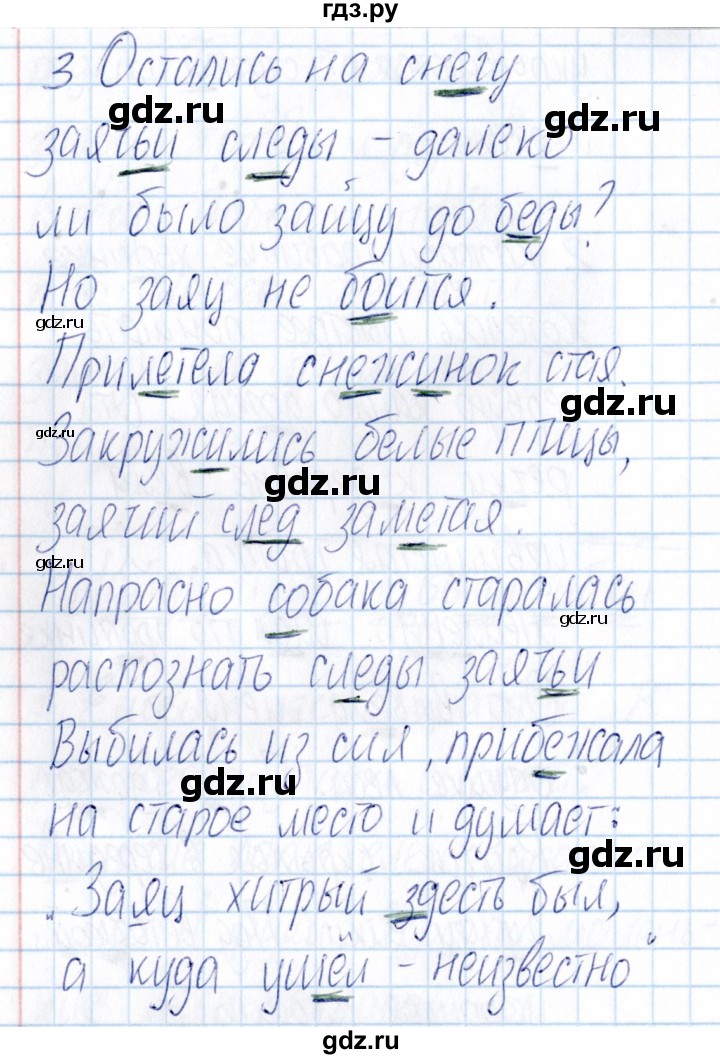 гдз.ру
3 Остались на снегу
gdz.ru
gdz.ru
заячьи следы – далеко
ли было зайцу до беды?
Но заяц не боится.
gdz.ru
gdz.ru
Прилетела снежинок стая.
gdz.ru
gdz.ru
Закружились белые птицы,
gdz.ru
заячий след заметая.
gdz.ru
Напрасно собака старалась
gdz.ru
распознать следы заячьи
Выбилась из сил, прибежала
gdz.ru
на старое место и думает:
gdz.ru
„Заяц хитрый здесь был,
а куда ушёл – неизвестно“
gdz.ru